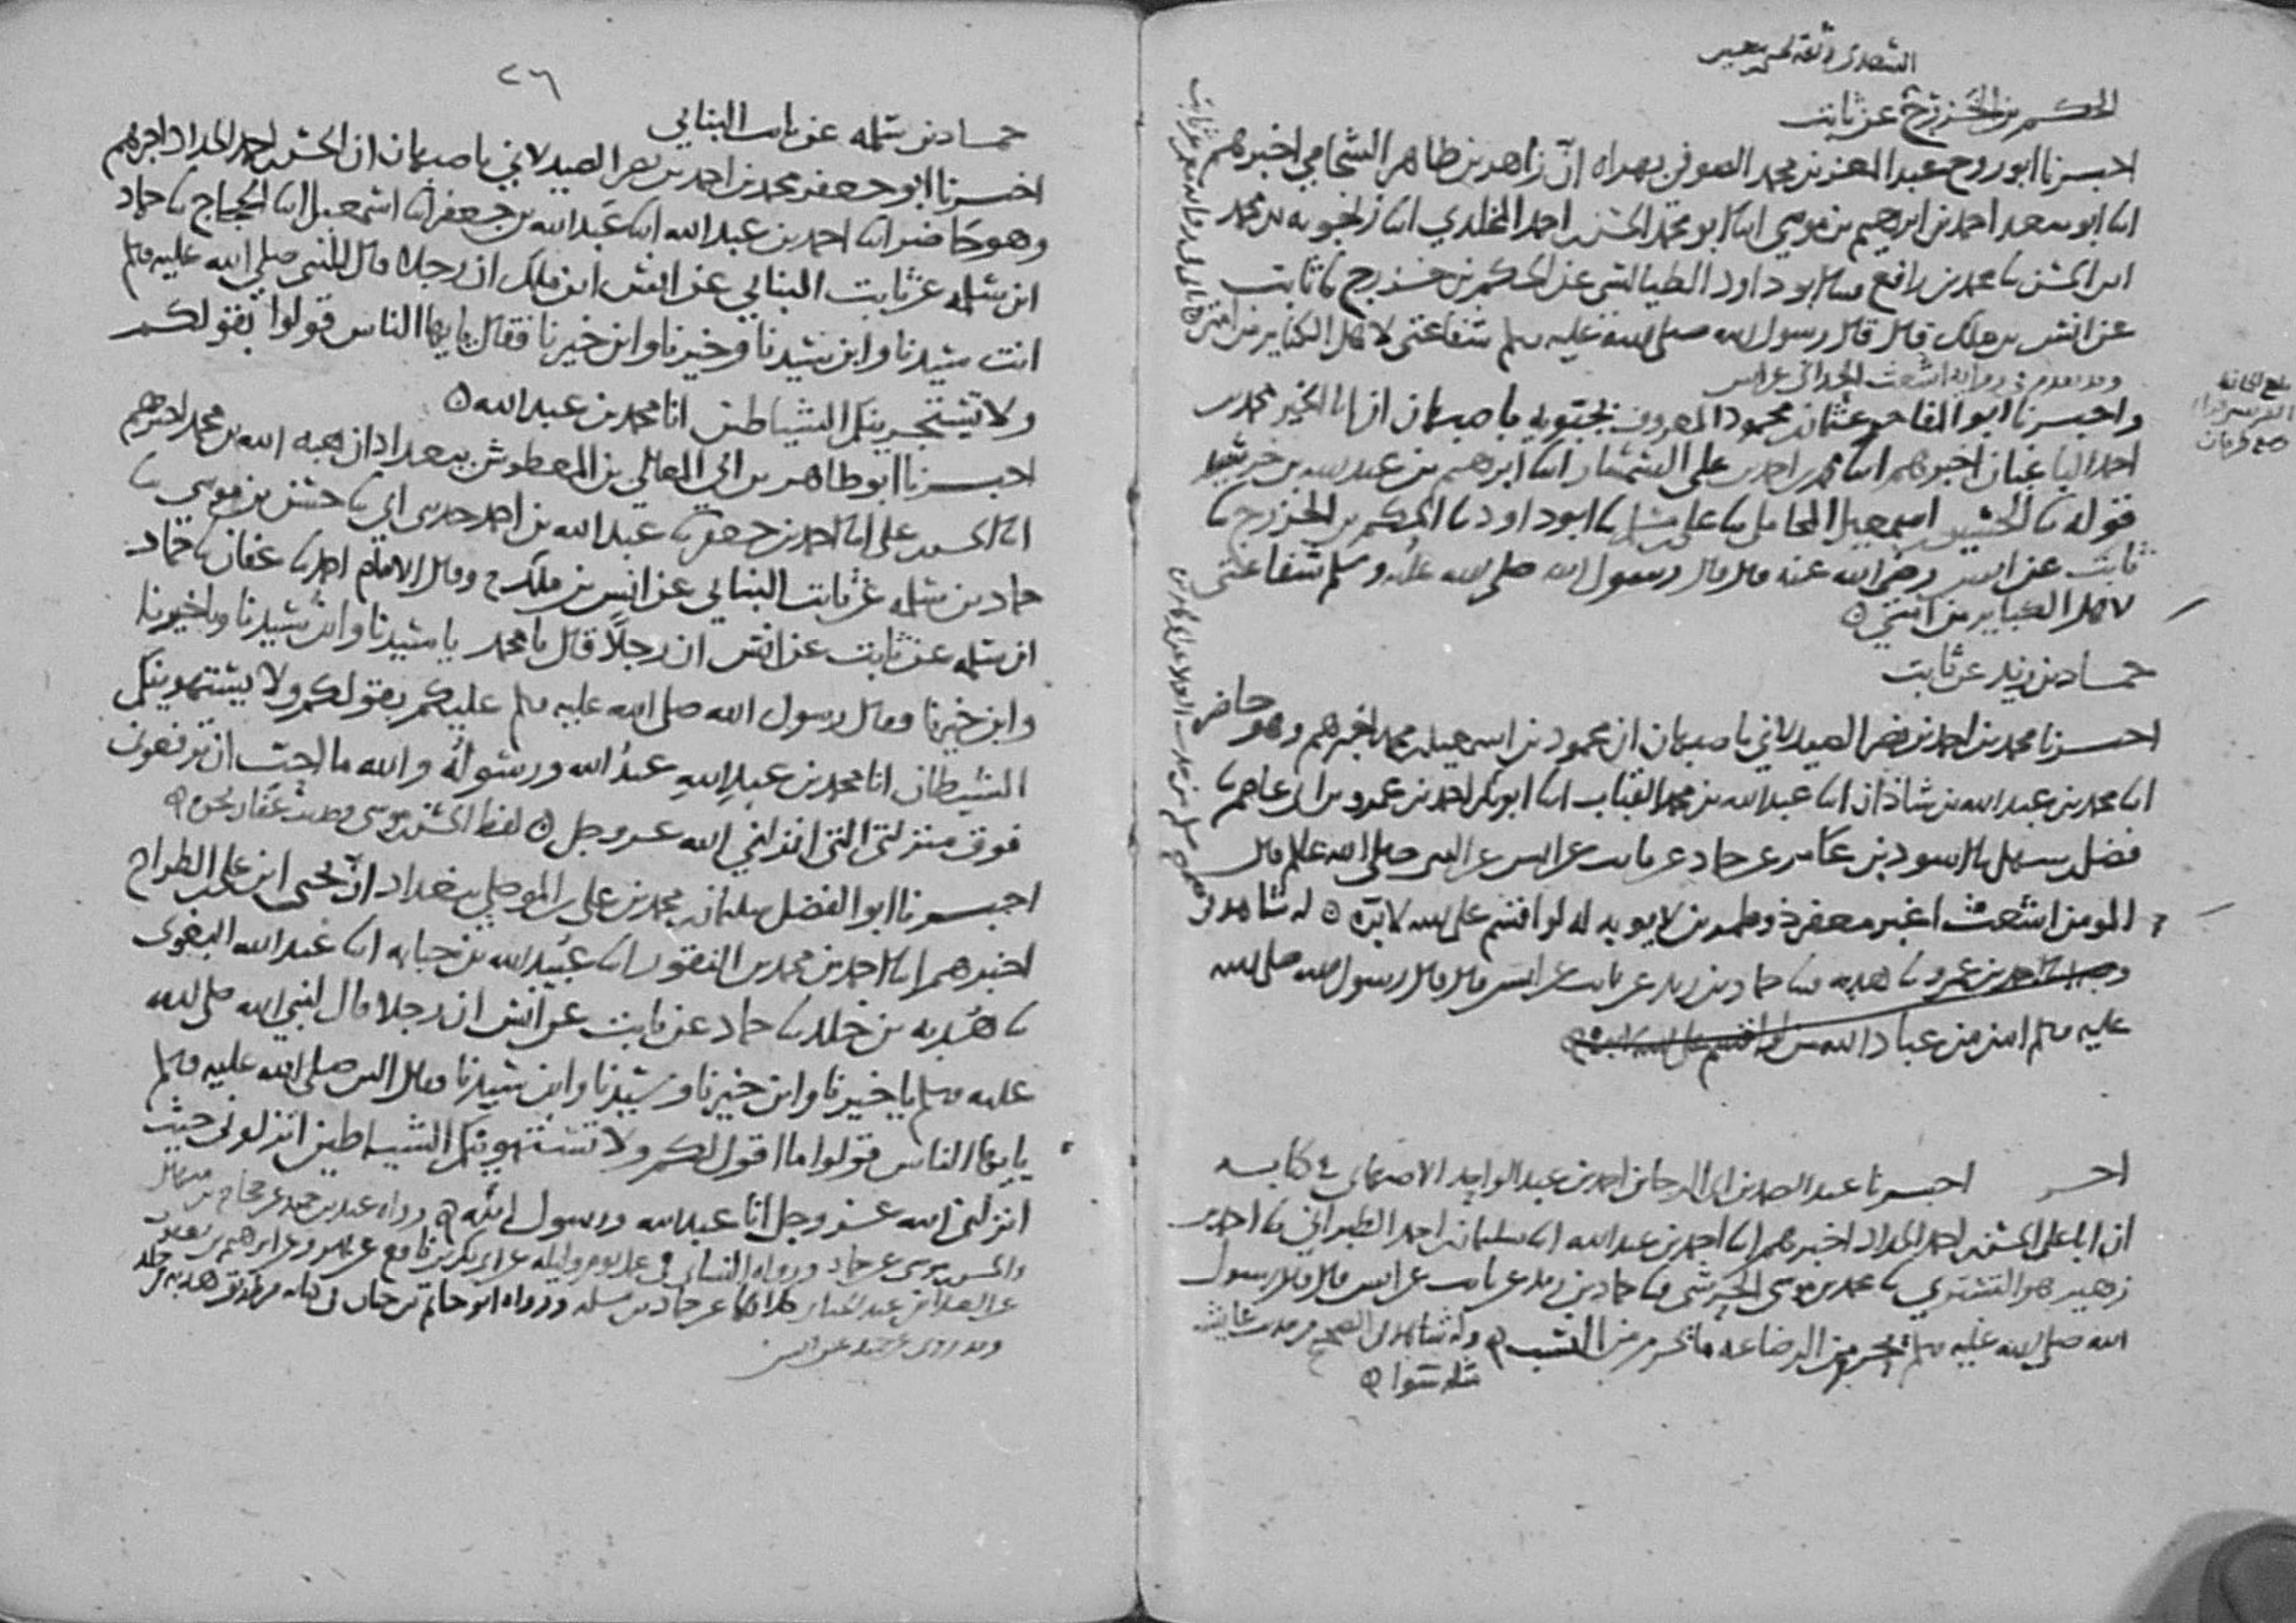 الحكم بن الخزرج عن ثابت
اخبرنا ابو روح عبد المعز بن محمد الصوفي بهراه ان زاهر بن طاهر الشحامي اخبرهم
ابنا ابو سعد احمد بن ابرهيم بن موسى ابنا ابو محمد الحسن احمد المخلدي ابنا زنجويه بن محمد
ابن الحسن نا محمد بن رافع نا ابو داود الطيالسي عن الحكم بن خزرج نا ثابت
عن انس بن ملك قال قال رسول الله صلى الله عليه وسلم شفاعتي لاهل الكباير من امتي
وقد تقدم في رواية اشعث الحداني عن انس
واخبرنا ابو المفاخر عثمان محمود المعروف بجبويه باصبهان ان ابا الخير محمد بن
احمد الباغبان اخبرهم ابنا محمد بن احمد بن علي السمسار ابنا ابرهيم بن عبد الله بن خرشيد
قوله نا الحسين اسمعيل المحاملي نا علي نا ابو داود نا الحكم بن الخزرج نا
ثابت عن انس رضي الله عنه قال قال رسول الله صلى الله عليه وسلم شفاعتي
لاهل الكباير من امتي ه
حماد بن زيد عن ثابت
اخبرنا محمد بن احمد بن نصر الصيدلاني باصبهان ان محمود بن اسمعيل بن محمد اخبرهم وهو حاضر
ابنا محمد بن عبد الله بن شاذان ابنا عبد الله بن محمد القباب ابنا ابو بكر احمد بن عمرو بن ابي عاصم نا
فضل بن سهل نا الاسود بن عامر عن حماد عن ثابت عن انس عن النبي صلى الله عليه قال
المومن اشعث اغبر ذو طمرين لا يوبه له لو اقسم على الله لابره ه له شاهد في
احمد بن عمرو نا هدبه نا حماد بن زيد عن ثابت عن انس قال قال رسول الله صلى الله
عليه وسلم ان من عباد الله من لو اقسم على الله لابره
اخبرنا عبد الصمد بن ابي الرجا بن احمد بن عبد الواحد الاصبهاني في كتابه
ان ابا علي الحسن احمد الحداد اخبرهم ابنا احمد بن عبد الله ابنا سليمان بن احمد الطبراني نا احمد بن
زهير هو التستري نا محمد بن موسى الحرشي نا حماد بن زيد عن ثابت عن انس قال قال رسول
الله صلى الله عليه وسلم يحرم من الرضاعه ما يحرم من النسب ه وله شاهد في الصحيح من حديث عايشه
مثله سوا ه
٢٦
حماد بن سلمه عن ثابت البناني
اخبرنا ابو جعفر محمد بن احمد بن نصر الصيدلاني باصبهان ان الحسن احمد الحداد اخبرهم
وهو حاضر ابنا احمد بن عبد الله ابنا عبد الله بن جعفر ابنا اسمعيل ابنا الحجاج نا حماد
ابن سلمه عن ثابت البناني عن انس ابن ملك ان رجلا قال للنبي صلى الله عليه وسلم
انت سيدنا وابن سيدنا وخيرنا وابن خيرنا فقال يايها الناس قولوا بقولكم
ولا تستجرينكم الشياطين انا محمد بن عبد الله ه
اخبرنا ابو طاهر بن ابي المعالي بن المعطوش ببغداد ان هبه الله بن محمد اخبرهم
ابنا الحسن علي ابنا احمد بن جعفر نا عبد الله بن احمد حدثني ابي نا حسن بن موسى نا
حماد بن سلمه عن ثابت البناني عن انس بن ملك ح وقال الامام احمد نا عفان نا حماد
ابن سلمه عن ثابت عن انس ان رجلاً قال يا محمد يا سيدنا وابن سيدنا ويا خيرنا
وابن خيرنا فقال رسول الله صلى الله عليه وسلم عليكم بقولكم ولا يستهوينكم
الشيطان انا محمد بن عبدِ اللهِ عبدُ الله ورسولُهُ والله ما احب ان ترفعوني
فوق منزلتي التي انزلني الله عز وجل ه لفظ الحسن بن موسى وحديث عفان نحوه ه
اخبرنا ابو الفضل سليمان بن محمد بن علي الموصلي ببغداد ان يحيى ابن علي الطراح
اخبرهم ابنا احمد بن محمد بن النقور ابنا عبيد الله بن حبابه ابنا عبد الله البغوي
نا هُدبه بن خلد نا حماد عن ثابت عن انس ان رجلا قال لنبي الله صلى الله
عليه وسلم يا خيرنا وابن خيرنا وسيدنا وابن سيدنا فقال النبي صلى الله عليه وسلم
يايها الناس قولوا ما اقول لكم ولا تستهوينكم الشياطين انزلوني حيث
انزلني الله عز وجل انا عبد الله ورسول الله ه رواه عبد بن حميد عن حجاج بن منهال
والحسن بن موسى عن حماد ورواه النسائي في عمل يوم وليله عن ابي بكر بن نافع عن بهز وعن ابرهيم بن يعقوب
عن العلا بن عبد الجبار كلاهما عن حماد بن سلمه ورواه ابو حاتم بن حبان في كتابه من طريق هدبه بن خلد
وقد روي عن حميد عن انس